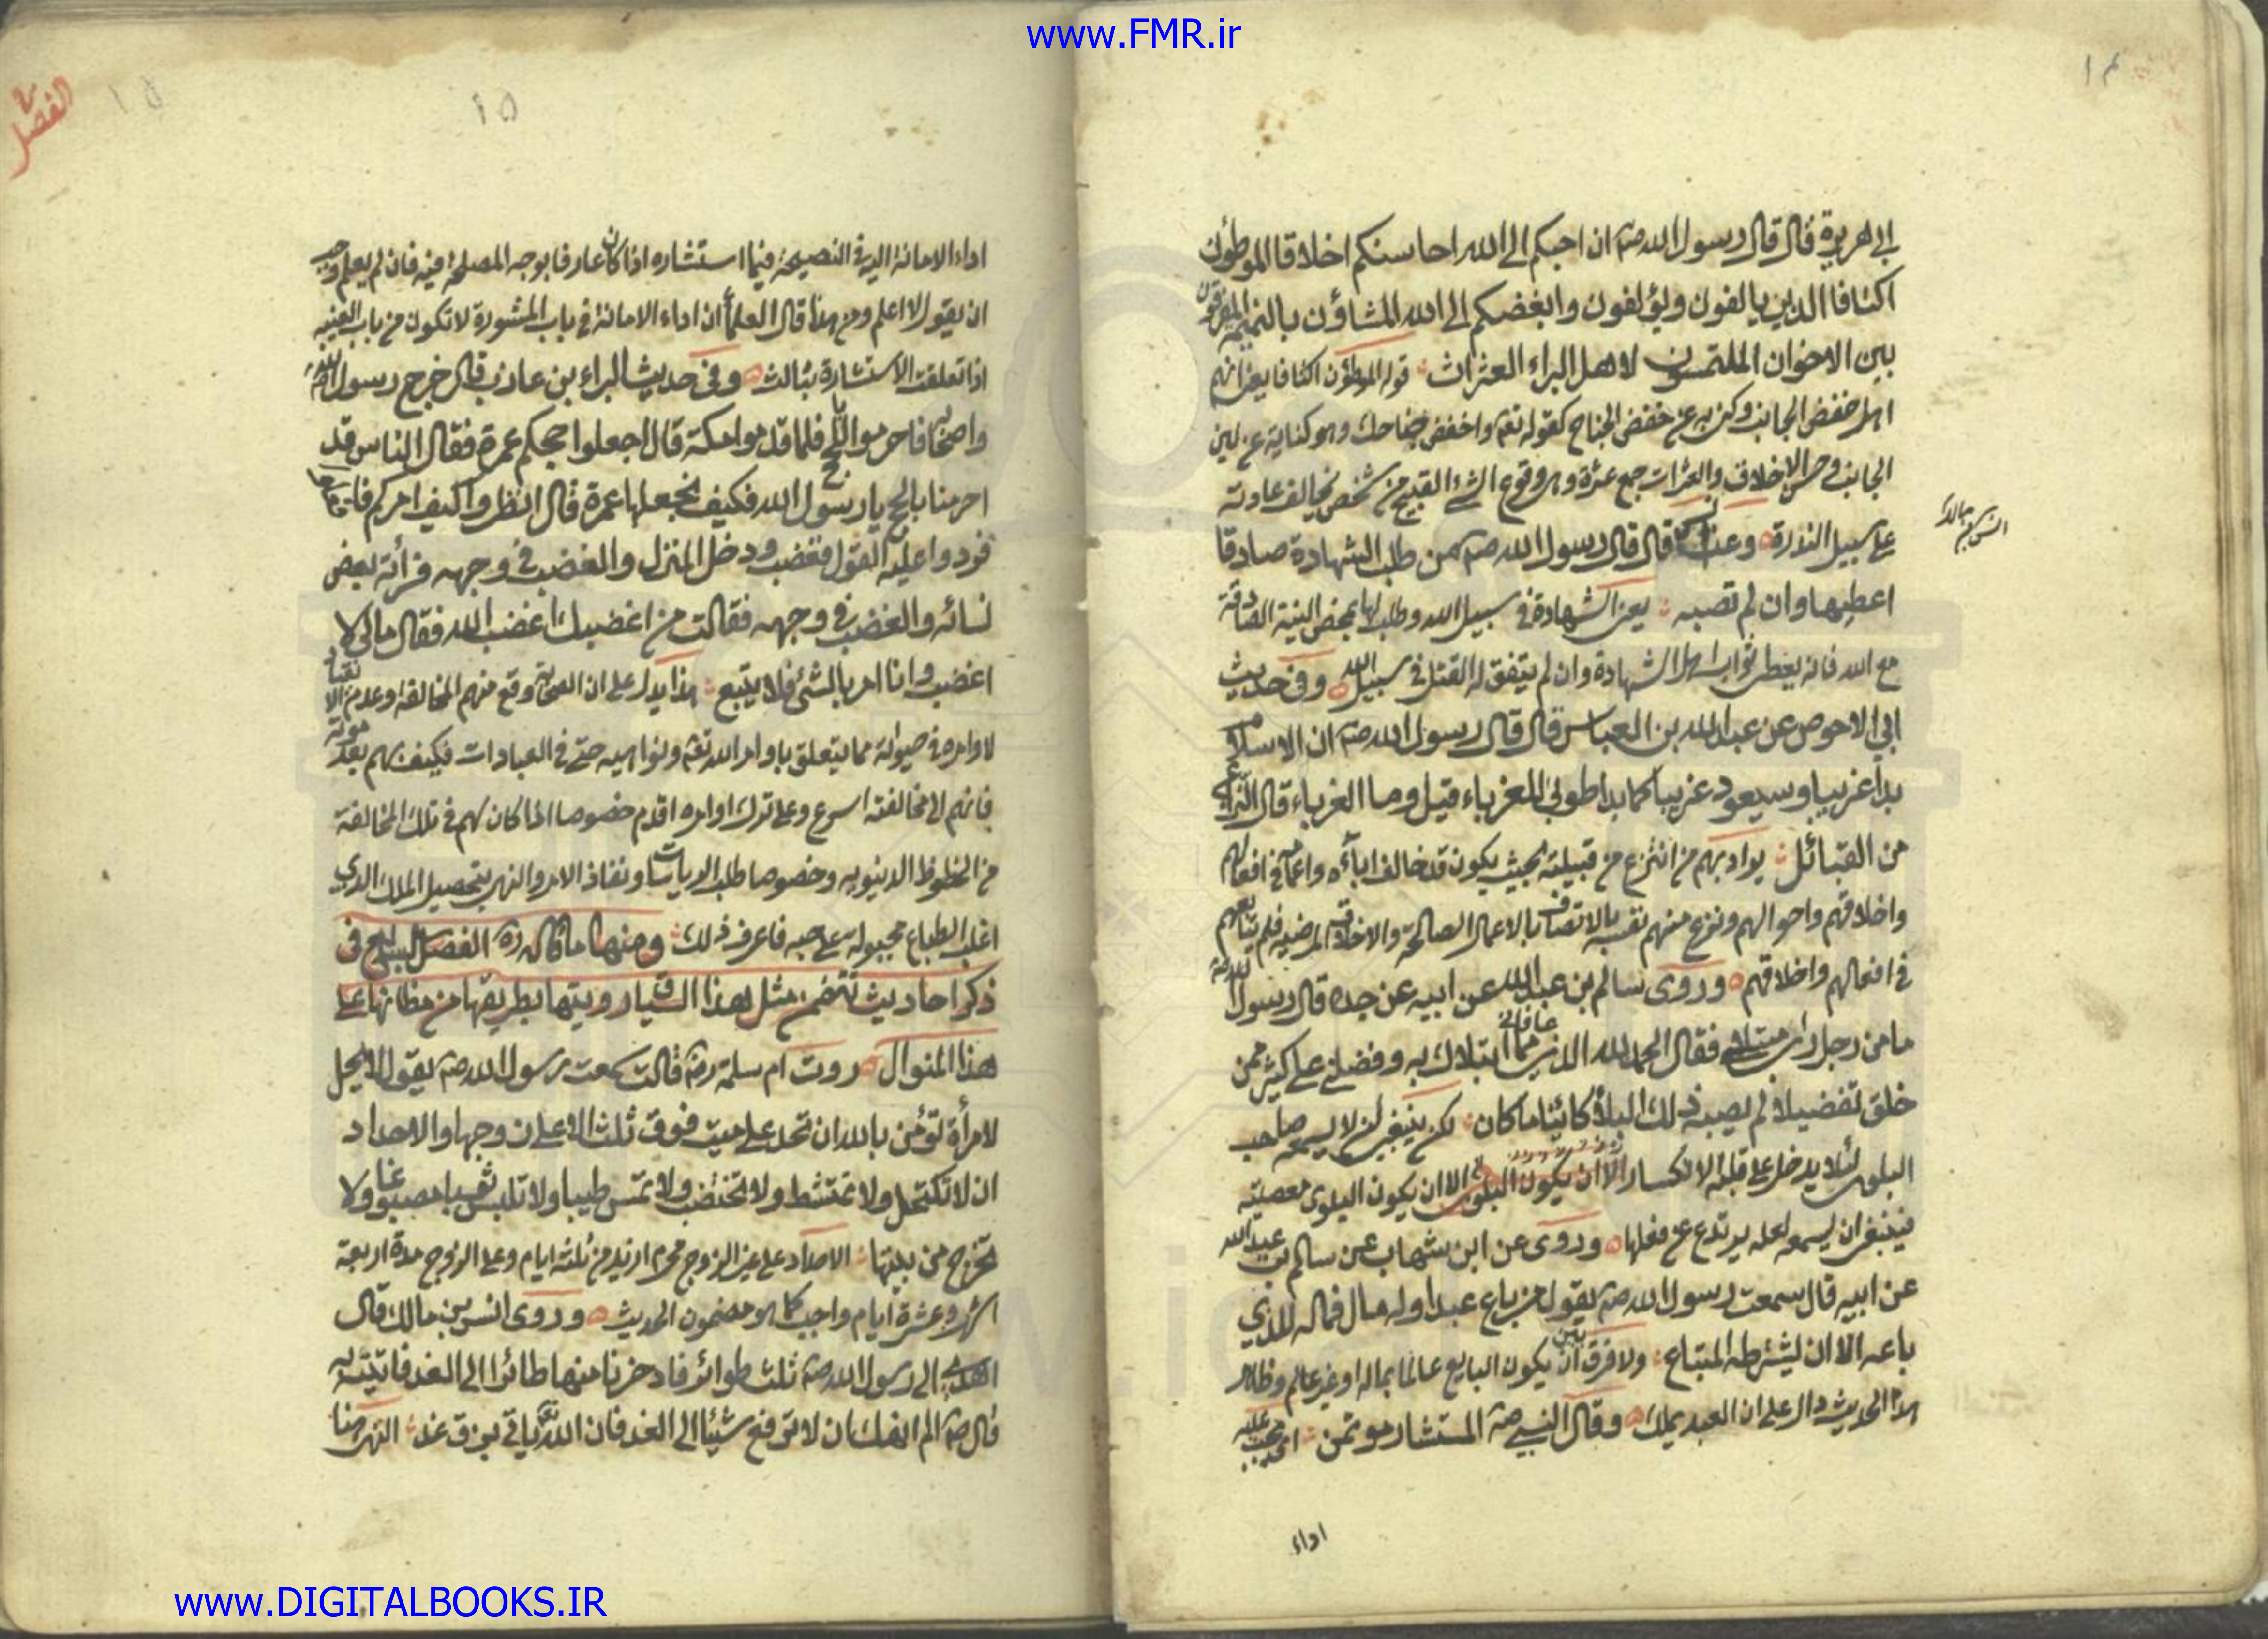 www.FMR.ir
١٤
ابي هريرة قال قال رسول الله صم ان احبكم الى الله احاسنكم اخلاقا الموطؤن
اكنافا الذين يالفون ويؤلفون وابغضكم الى الله المشاؤن بالنميمة المفرقون
بين الاخوان الملتمسون لاهل البراء العثرات قوله الموطؤن اكنافا يعني انهم
اهل خفض الجانب وكنى به عن خفض الجناح كقوله تعم واخفض جناحك وهو كناية عن لين
الجانب وحسن الاخلاق والعثرات جمع عثرة وهي وقوع الشئ القبيح من شخص يخالف عادته
على سبيل الندرة وعن انس قال قال رسول الله صم من طلب الشهادة صادقا
انس بن مالك
اعطيها وان لم تصبه يعني الشهادة في سبيل الله وطلبها بمحض النية الصادقة
مع الله فانه يعطى ثواب اهل الشهادة وان لم يتفق له القتل في سبيل الله وفي حديث
ابي الاحوص عن عبد الله بن العباس قال قال رسول الله صم ان الاسلام
بدأ غريبا وسيعود غريبا كما بدا طوبى للغرباء قيل وما الغرباء قال النزاع
من القبائل يراد بهم من انتزع من قبيلته بحيث يكون قد خالف اباءه واعمامه في افعالهم
واخلاقهم واحوالهم ونزع منهم نفسه بالاتصاف بالاعمال الصالحة والاخلاق المرضية فلم يتابعهم
في افعالهم واخلاقهم وروى سالم بن عبد الله عن ابيه عن جده قال رسول الله صم
ما من رجل رأى مبتلى فقال الحمد لله الذي عافاني مما ابتلاك به وفضلني على كثير ممن
خلق تفضيلا لم يصبه ذلك البلاء كائنا ما كان لكن ينبغي ان لا يسمعه صاحب
البلوى لئلا يدخل على قلبه الانكسار الا ان يكون البلوى الا ان يكون البلوى معصية
فينبغي ان يسمعه لعله يرتدع عن فعلها وروى عن ابن شهاب عن سالم بن عبد الله
عن ابيه قال سمعت رسول الله صم يقول من باع عبدا وله مال فماله للذي
باعه الا ان يشترطه المبتاع ولا فرق بين ان يكون البايع عالما بماله او غير عالم وظاهر
هذا الحديث دال على ان العبد يملك وقال النبي صم المستشار مؤتمن اي يجب عليه
اداء
الفصل
١٥
١٥
اداء الامانة اليه في النصيحة فيما استشاره اذا كان عارفا بوجه المصلحة فيه فان لم يعلم وجب
ان يقول لا اعلم ومن هذا قال العلماء ان اداء الامانة في باب المشورة لا تكون من باب الغيبة
اذا تعلقت الاستشارة بثالث وفي حديث البراء بن عازب قال خرج رسول الله صم
واصحابه فاحرموا بالحج فلما قدموا مكة قال اجعلوا حجكم عمرة فقال الناس قد
احرمنا بالحج يا رسول الله فكيف نجعلها عمرة قال انظروا كيف امركم
فردوا عليه القول فغضب ودخل المنزل والغضب في وجهه فرأته بعض
نسائه والغضب في وجهه فقالت من اغضبك اغضبه الله فقال ما لي لا
اغضب وانا امر بالشئ فلا يتبع هذا يدل على ان الصحابة وقع منهم المخالفة وعدم الانقياد
لاوامره في حيوته مما يتعلق باوامر الله تعم ونواهيه حتى في العبادات فكيف بهم بعد موته
فانهم الى مخالفته اسرع وعلى ترك اوامره اقدم خصوصا اذا كان لهم في تلك المخالفة
من الحظوظ الدنيوية وخصوصا طلب الرياسات ونفاذ الامر والنهي بتحصيل الملك الذي
اغلب الطباع مجبولة على حبه فاعرف ذلك ومنها ما قاله ره الفصل السابع في
ذكر احاديث تتضمن مثل هذا السياق رويتها بطريقها من مظانها على
هذا المنوال روت ام سلمة رض قالت سمعت رسول الله صم يقول لا يحل
لامرأة تؤمن بالله ان تحد على ميت فوق ثلث الا على زوجها والاحداد
ان لا تكتحل ولا تمتشط ولا تختضب ولا تمس طيبا ولا تلبس ثوبا مصبوغا ولا
تخرج من بيتها الاحداد على غير الزوج محرم ازيد من ثلثة ايام وعلى الزوج مدة اربعة
اشهر وعشرة ايام واجب كما هو مضمون الحديث وروى انس بن مالك قال
اهدي الى رسول الله صم ثلث طوائر فادخرنا منها طائرا الى الغد فاتيته به
قال صم الم انهك ان لا ترفع شيئا الى الغد فان الله تعم ياتي برزق غد النهي هنا
www.DIGITALBOOKS.IR